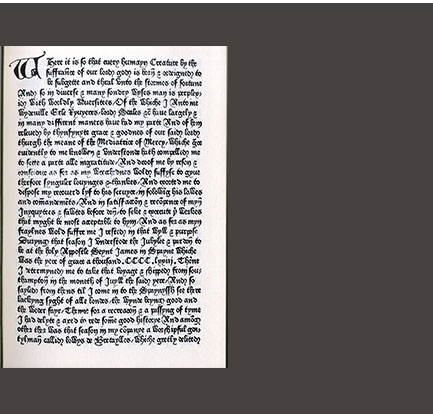 Where it is so that euery humayn Creature by the
suffrance of our lord god is born & ordeigned to
be subgette and thral vnto the stormes of fortune
And so in diuerse & many sondry wyses man is perplex-
id with worldly aduersitees / Of the whiche I Antoine
Wydeuille Erle Ryuyeres / lord Scales &c haue largely &
in many different maners haue had my parte And of hem
releued by thynfynyte grace & goodnes of our said lord
thurgh the meane of the Mediatrice of Mercy / whiche gce
euidently to me knowen & vnderstonde hath compelled me
to sette a parte alle ingratitude / And droof me by reson &
conscience as fer as my wrecchednes wold suffyse to gyue
therfore synguler louynges & thankes / And exorted me to
dispose my recouerd lyf to his seruyce / in folowing his lawes
and comandements / And in satisfaccon & recompence of myn
Inyquytees & fawtes before don / to seke & execute ye werkes
that myght be most acceptable to hym / And as fer as myn
fraylnes wold suffre me I rested in that wyll & purpose
Duryng that season I vnderstode the Jubylee & pardon to
be at the holy Appostle Seynt James in Spayne whiche
was the yere of grace a thousand .CCCC.lxxiij. Thene
I determyned me to take that voyage & shipped from sou-
thampton in the moneth of Juyll the said yere / And so
sayled from thens til I come in to the Spaynyssh see there
lackyng syght of alle londes / the wynde beyng good and
the weder fayr / Thenne for a recreacon & a passyng of tyme
I had delyte & axed to rede some good historye And among
other ther was that season in my companye a worshipful gen-
tylman callid lowys de Bretaylles / whiche gretly delited